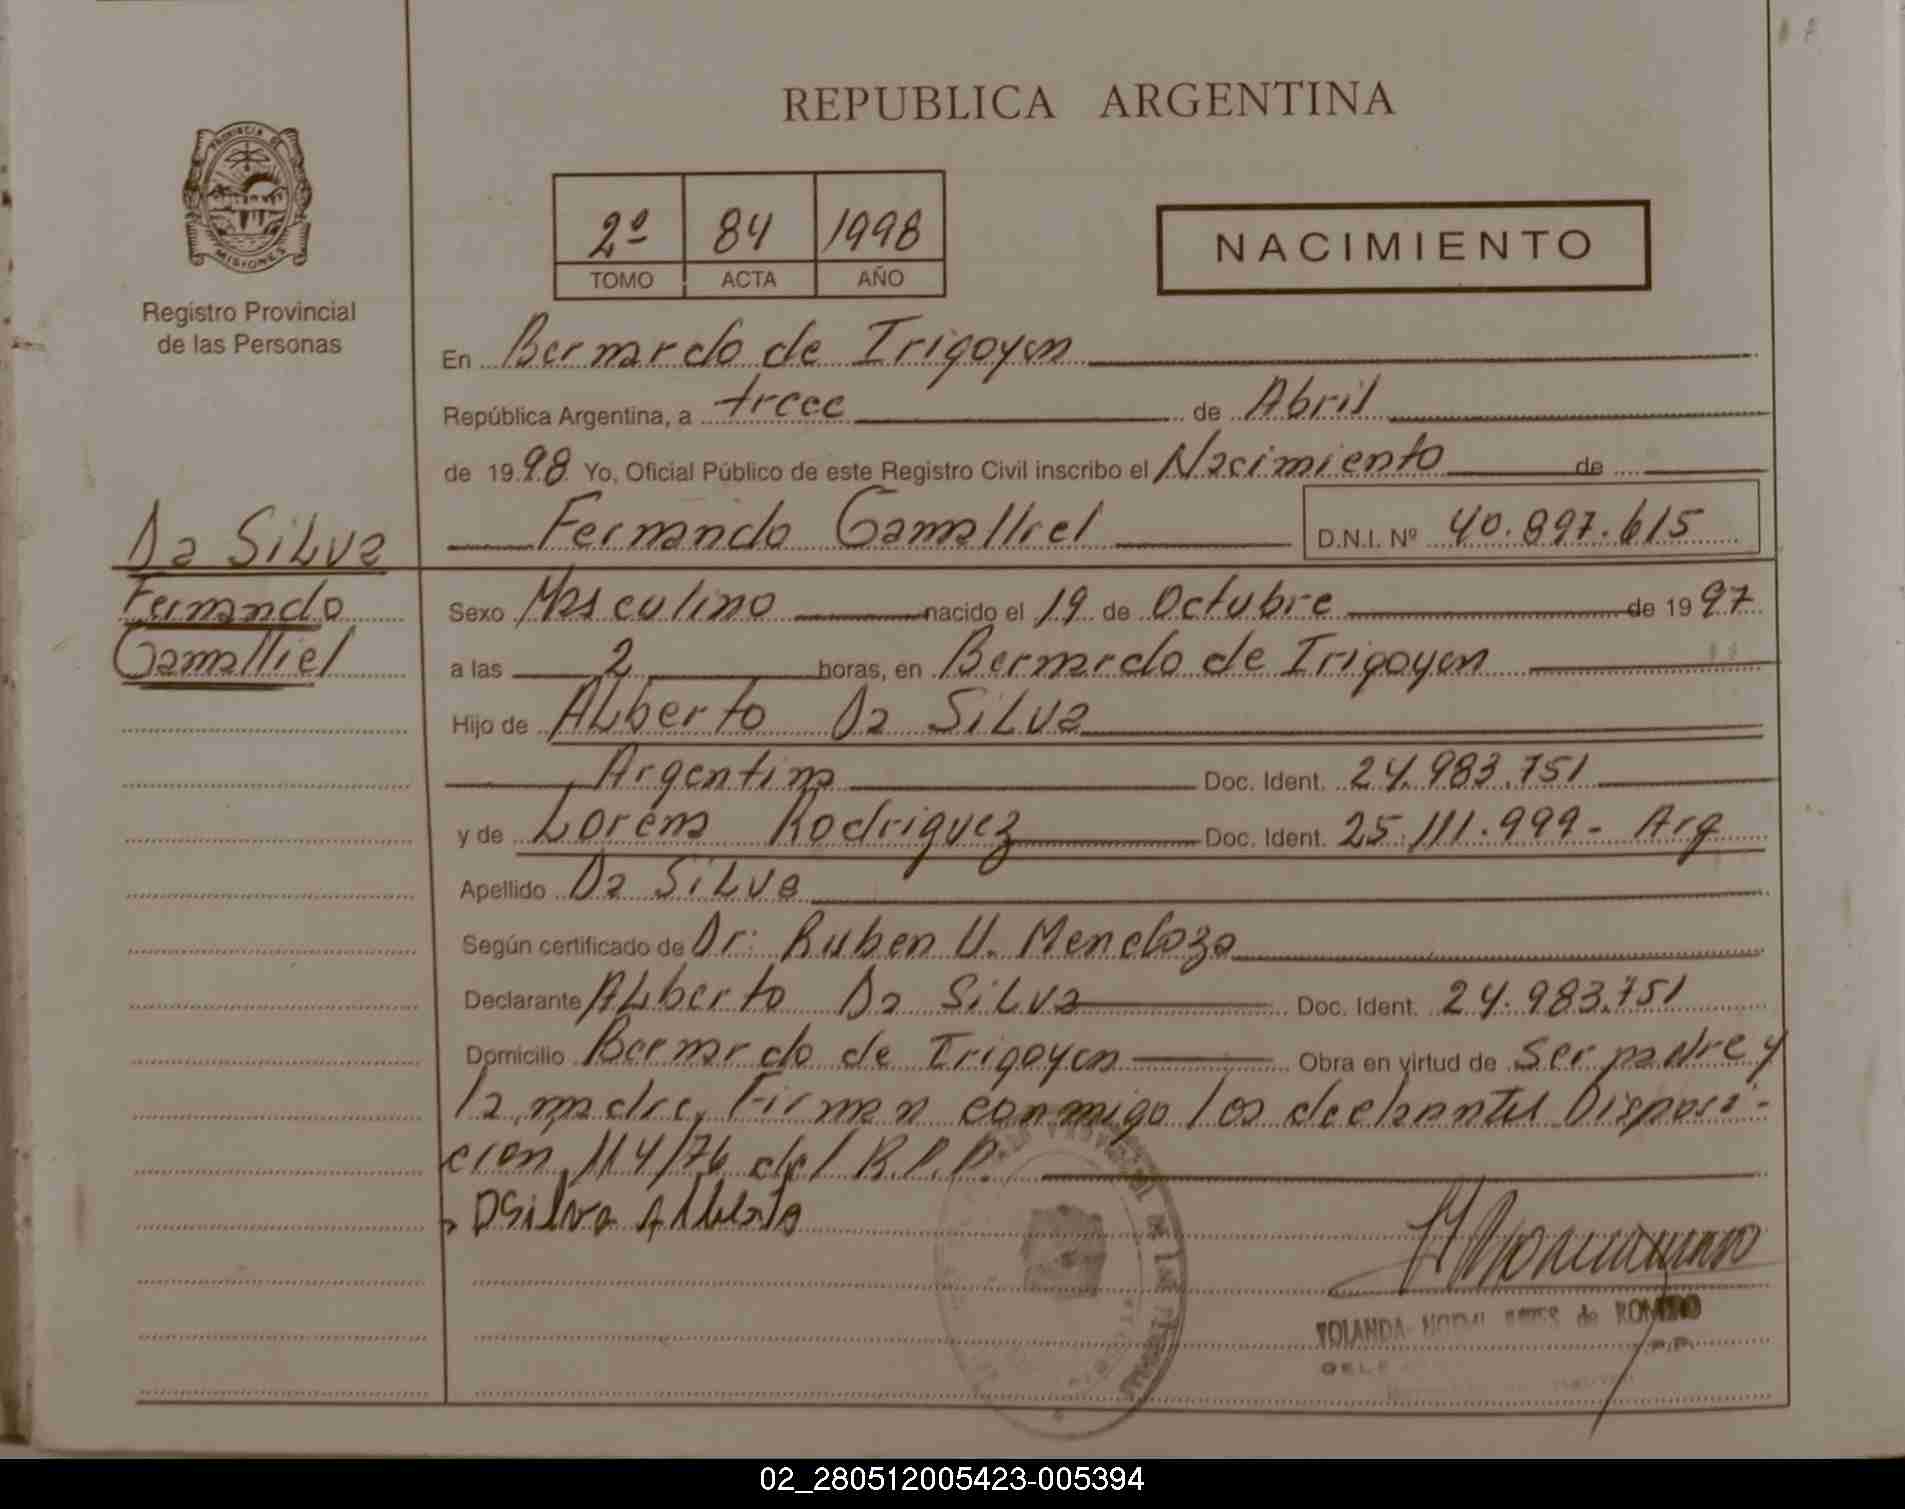 REPUBLICA ARGENTINA
PROVINCIA DE
MISIONES
Registro Provincial
de las Personas
2º 84 1998
TOMO ACTA AÑO
NACIMIENTO
En Bernardo de Irigoyen
República Argentina, a trece de Abril
de 1998 Yo, Oficial Público de este Registro Civil inscribo el Nacimiento de
Da Silva
Fernando Gamalliel D.N.I. Nº 40.897.615
Fernando
Gamalliel
Sexo Masculino nacido el 19 de Octubre de 1997
a las 2 horas, en Bernardo de Irigoyen
Hijo de Alberto Da Silva
Argentina Doc. Ident. 24.983.751
y de Lorena Rodriguez Doc. Ident. 25.111.999- Arg
Apellido Da Silva
Según certificado de Dr: Ruben U. Mendoza
Declarante Alberto Da Silva Doc. Ident. 24.983.751
Domicilio Bernardo de Irigoyen Obra en virtud de ser padre y
la madre, Firman conmigo los declarantes Disposi-
cion 114/76 del R.P.P.
DSilva Alberto
YOLANDA de ROMERO
02_280512005423-005394